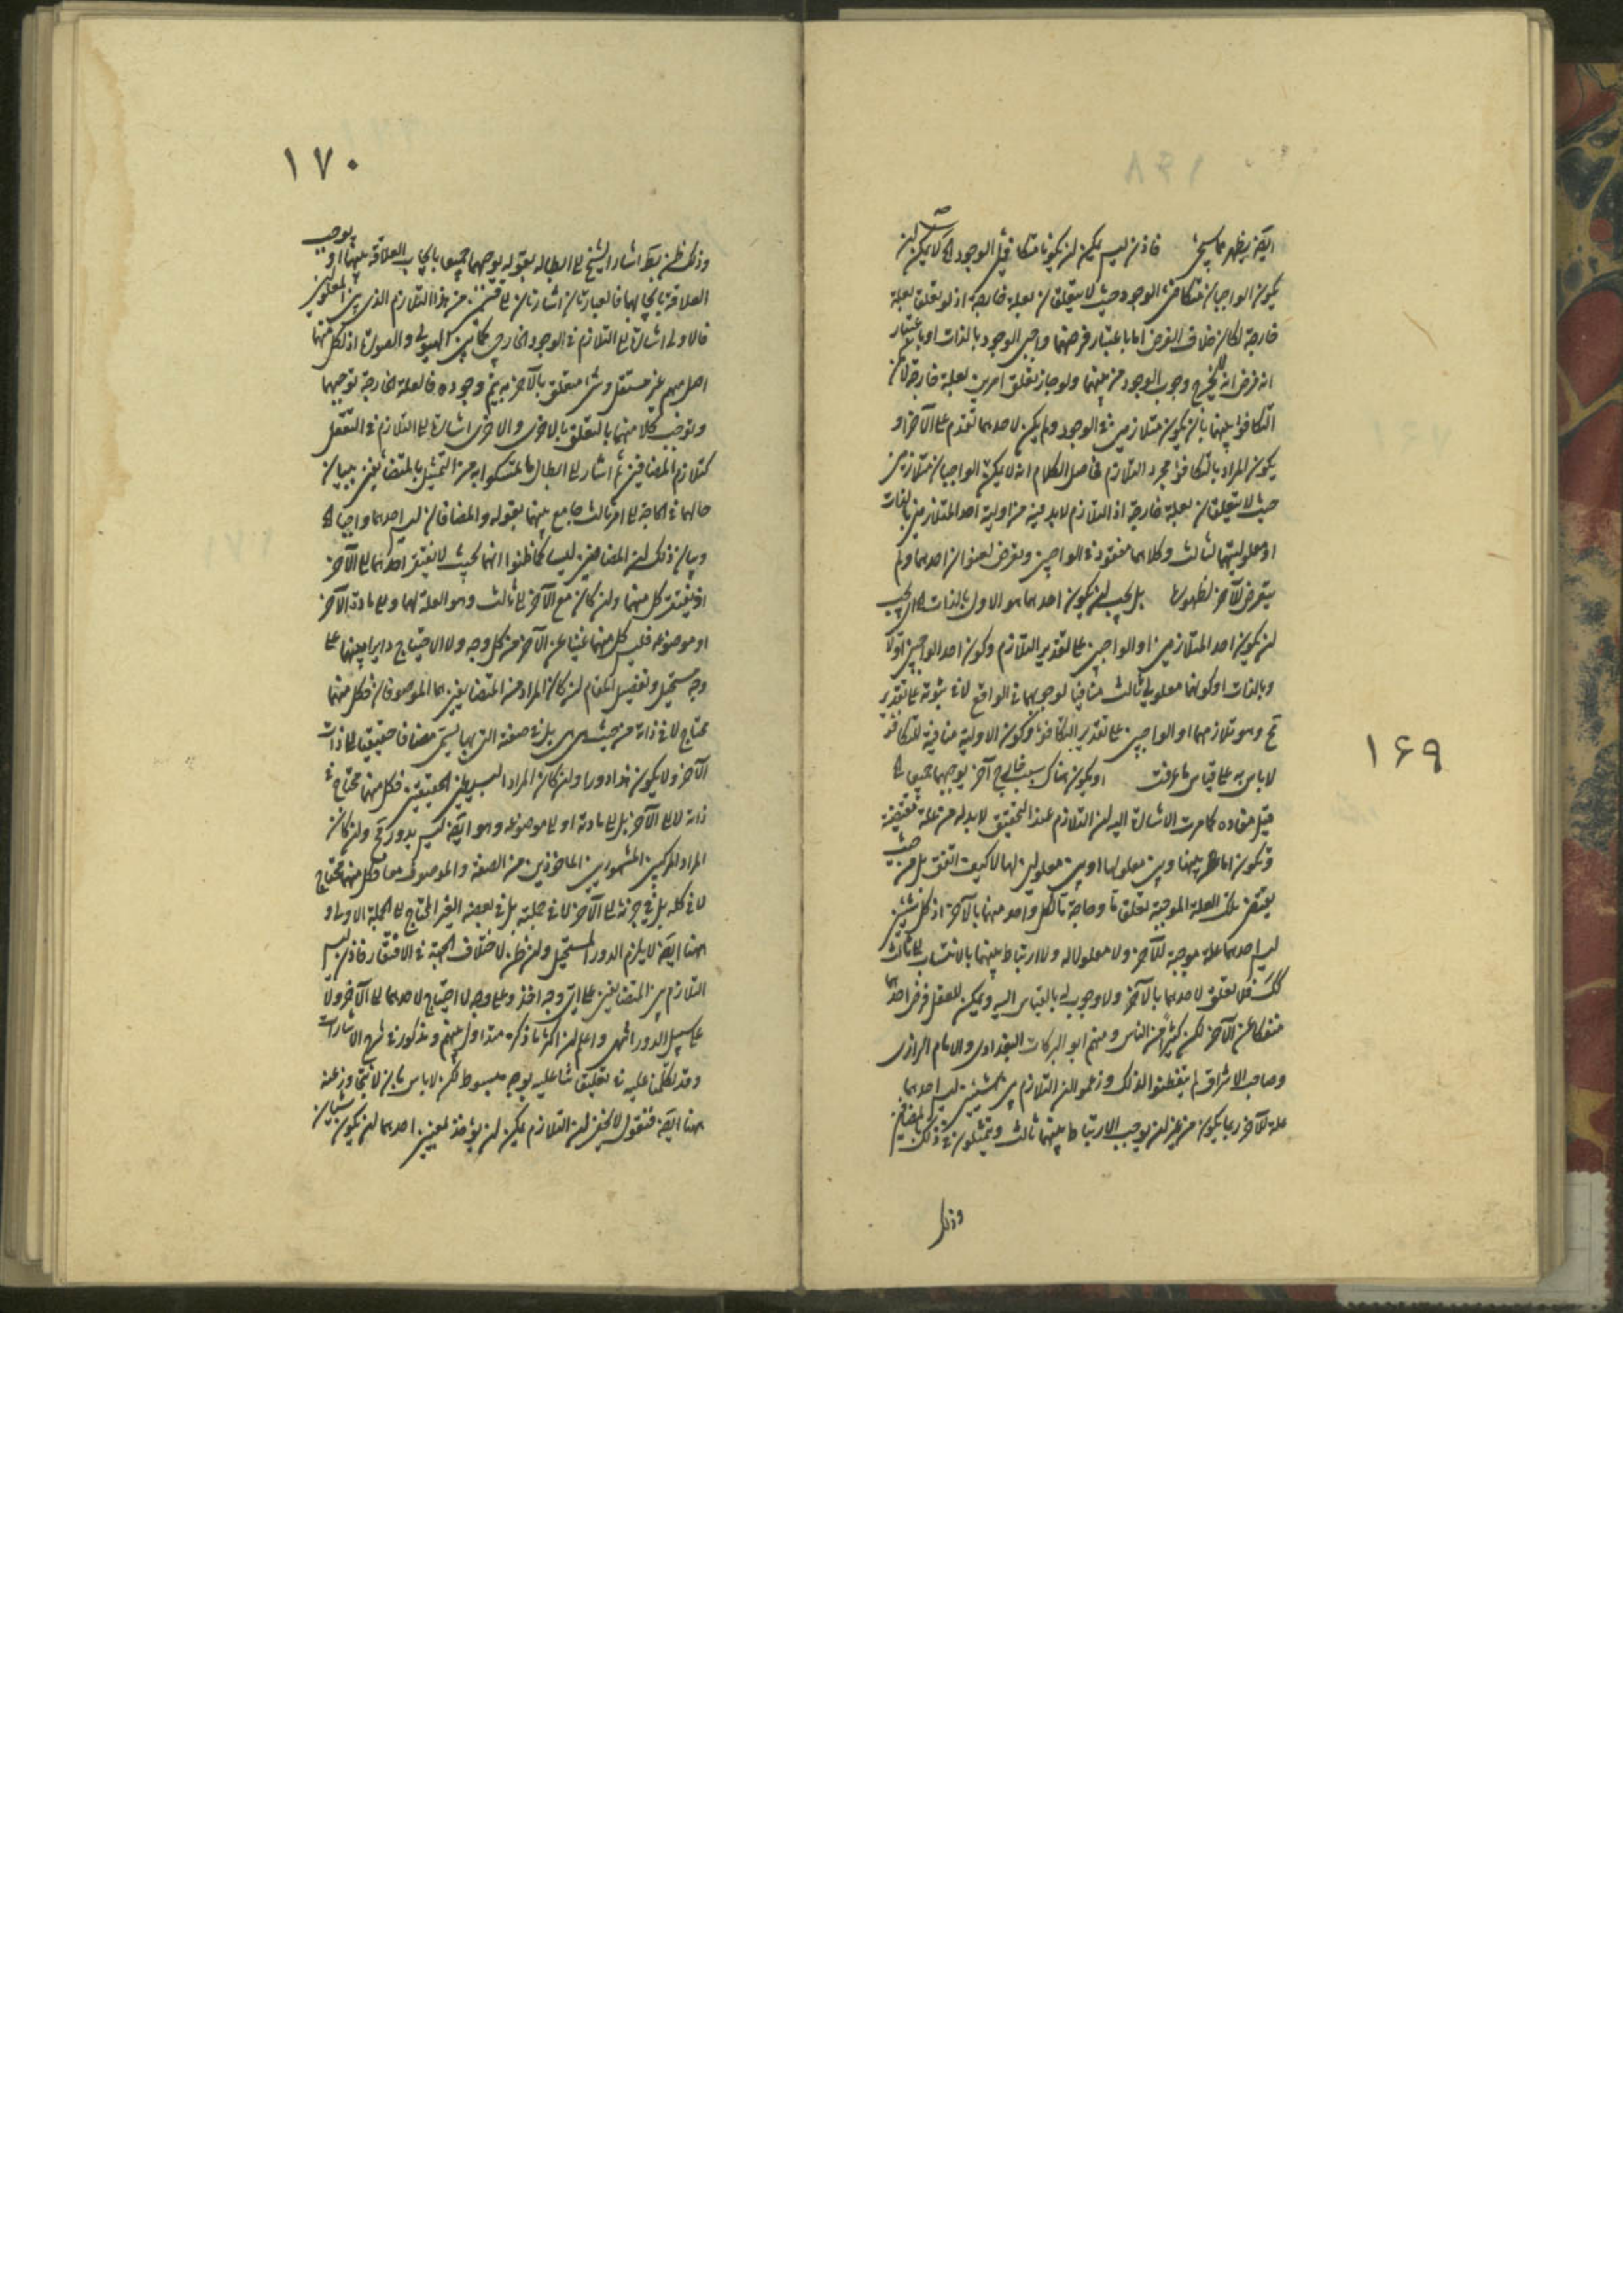 ١٦٩
ايضا يظهر مما سيجئ فاذن ليس يمكن ان يكونا متكافئى الوجود لا يمكن ان
يكون الواجبان متكافئى الوجود حيث لا يتعلقان بعلة خارجة اذ لو تعلق بعلة
خارجة لكان خلاف الفرض اما باعتبار فرضهما واجبى الوجود بالذات او باعتبار
انه فرض انه لا يخرج وجوب الوجود من بينهما ولو جاز تعلق امرين بعلة خارجة لامكن
التكافؤ بينهما بان يكونا متلازمين فى الوجود ولم يكن لاحدهما تقدم على الآخر او
يكون المراد بالتكافؤ مجرد التلازم فحاصل الكلام انه لا يمكن الواجبان متلازمين
حيث لا يتعلقان بعلة خارجة اذ التلازم لا بد فيه من اولية احد المتلازمين بالذات
او معلوليتهما لثالث وكلاهما مفقود فى الواجبين وتعرض لعنوان احدهما ولم
يتعرض للآخر لظهوره بل يجب ان يكون احدهما هو الاول بالذات اى يجب
ان يكون احد المتلازمين او الواجبين على تقدير التلازم وكون احد الواجبين اولا
وبالذات او كونهما معلولى ثالث منافيا لوجوبهما فى الواقع لا فى ثبوته على تقدير
مح وهو تلازمهما او الواجبين على تقدير التكافؤ وكون الاولية منافية للتكافؤ
لا باس به على قياس ما عرفت او يكون هناك سبب خارج آخر يوجبهما جميعا
قيل مفاده كما مرت الاشارة اليه ان التلازم عند التحقيق لا بد له من علة مقتضية
وتكون اما بينها وبين معلولها او بين معلولين لها لا كيف اتفق بل من حيث
يقتضى تلك العلة الموجبة تعلقا ما وحاجة ما لكل واحد منهما بالآخر اذ كل شيئين
ليس احدهما علة موجبة للآخر ولا معلولا له ولا ارتباط بينهما بالانتساب الى ثالث
كك فلا تعلق لاحدهما بالآخر ولا وجوب له بالقياس اليه ويمكن للعقل فرض احدهما
منفكا عن الآخر لكن كثيرا من الناس ومنهم ابو البركات البغدادى والامام الرازى
وصاحب الاشراق لم يتفطنوا لذلك وزعموا ان التلازم بين شيئين ليس احدهما
علة للآخر ربما يكون من غير ان يوجب الارتباط بينهما ثالث ويتمثلون فى ذلك بالمضافين
وذلك
١٧٠
وذلك ظن باطل اشار الشيخ الى ابطاله بقوله يوجبهما جميعا بايجاب العلاقة بينهما او يوجب
العلاقة بايجابهما فالعبارتان اشارتان الى قسمين من هذا التلازم الذى بين المعلولين
فالاولى اشارة الى التلازم فى الوجود الخارجى كما بين الهيولى والصورة اذ لكل منهما
اصل مبهم غير مستقل وشئ متعلق بالآخر به يتم وجوده فالعلة الخارجة توجبهما
وتوجب كلا منهما بالتعلق بالاخرى والاخرى اشارة الى التلازم فى التعقل
كتلازم المضافين ثم اشار الى ابطال ما تمسكوا به من التمثيل بالمتضايفين ببيان
حالهما فى الحاجة الى امر ثالث جامع بينهما بقوله والمضافان ليس احدهما واجبا
وبيان ذلك ان المضافين ليسا كما ظنوا انهما بحيث لا يفتقر احدهما الى الآخر
اذ يفتقر كل منهما وان كان مع الآخر الى ثالث وهو العلة لهما والى مادة الآخر
او موضوعه فليس كل منهما غنيا عن الآخر من كل وجه ولا الاحتياج دايرا بينهما على
وجه مستحيل وتفصيل المقام ان كان المراد من المتضايفين هما الموصوفان فكل منهما
محتاج لا فى ذاته من حيث هى هى بل فى صفته التى بها يسمى مضافا حقيقيا الى ذات
الآخر ولا يكون هذا دورا وان كان المراد البسيطين الحقيقيين فكل منهما محتاج فى
ذاته لا الى الآخر بل الى مادته او الى موضوعه وهو ايضا ليس بدور مح وان كان
المراد المركبين المشهورين الماخوذين من الصفة والموصوف معا فكل منهما محتاج
لا فى كله بل فى جزئه الى الآخر لا فى جملته بل فى بعضه الغير المحتاج الى الجملة الاولى و
ههنا ايضا لا يلزم الدور المستحيل وان ظن لاختلاف الجهة فى الافتقار فاذن ليس
التلازم بين المتضايفين على اى وجه اخذ وعلى وجه لا احتياج لاحدهما الى الآخر ولا
على سبيل الدور انتهى واعلم ان اكثر ما ذكره متداول بينهم ومذكور فى شرح الاشارات
وقد تكلمنا عليه فى تعليقاتنا عليه بوجه مبسوط لكن لا باس بان لا نتجاوز عنه
ههنا ايضا فنقول لا يخفى ان التلازم يمكن ان يؤخذ لمعنيين احدهما ان يكون شيئان